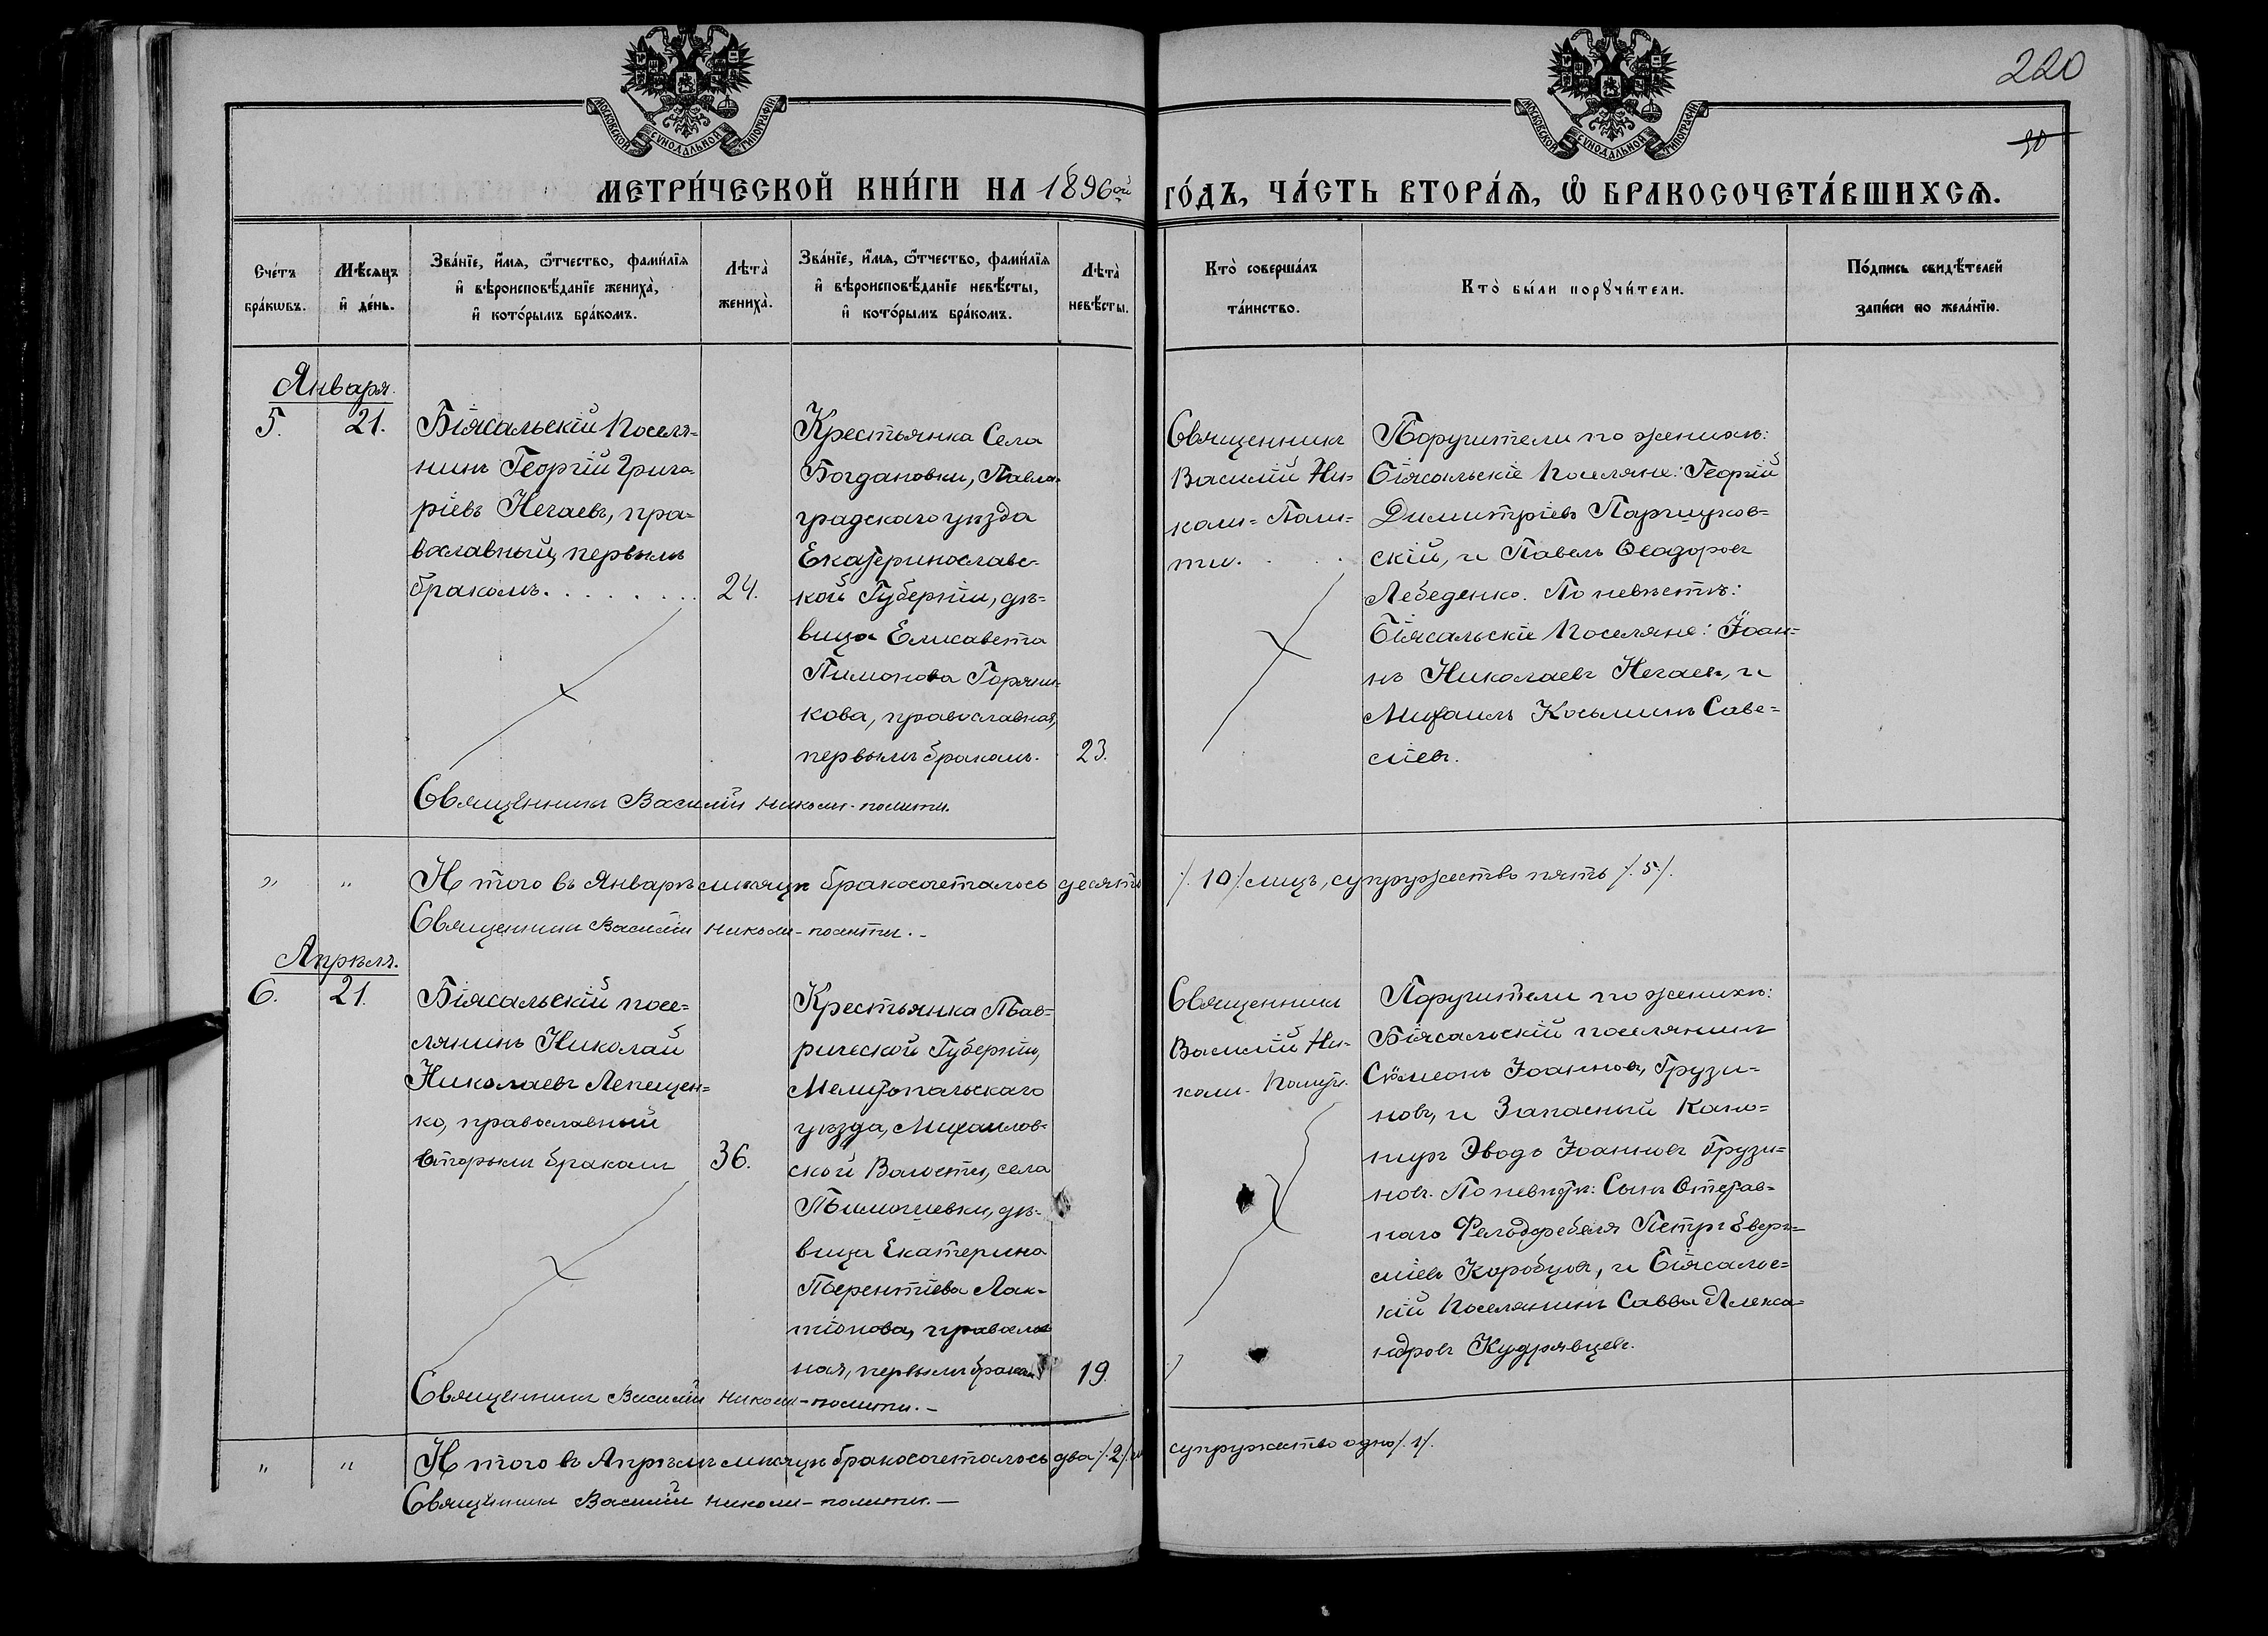 220
30
МОСКОВСКОЙ СѴНОДАЛЬНОЙ ТИПОГРАФІИ
МОСКОВСКОЙ СѴНОДАЛЬНОЙ ТИПОГРАФІИ
МЕТРИ́ЧЕСКОЙ КНИ́ГИ НА 1896ой ГО́ДЪ, ЧА́СТЬ ВТОРА́Ѧ, Ѽ БРАКОСОЧЕТА́ВШИХСѦ.
Сче́тъ
бра́кѡвъ.
Мѣ́сяцъ
и҆ де́нь.
Зва́нїе, и҆́мѧ, ѻ҆́тчество, фами́лїѧ
и҆ вѣроисповѣ́данїе жениха̀,
и҆ кото́рымъ бра́комъ.
Лѣта̀
жениха̀.
Зва́нїе, и҆́мѧ, ѻ҆́тчество, фами́лїѧ
и҆ вѣроисповѣ́данїе невѣ́сты,
и҆ кото́рымъ бра́комъ.
Лѣта̀
невѣ́сты.
Кто̀ соверша́лъ
та́инство.
Кто̀ бы́ли порꙋчи́тели.
По́дпись свидѣ́телей
за́писи по жела́нїю.
Января.
5.
21.
Біясальскій поселя-
нинъ Георгій Григо-
ріевъ Нечаевъ, пра-
вославный, первымъ
бракомъ.
24.
Крестьянка Села
Богдановки, Павло-
градскаго уѣзда
Екатеринославс-
кой Губерніи, дѣ-
вица Елисавета
Пимонова Горяни-
кова, православная,
первымъ бракомъ.
23.
Священникъ
Василій Ни-
коли-Поли-
ти.
Поручители по женихѣ:
Біясальскіе Поселяне: Георгій
Димитріевъ Паршуков-
скій, и Павелъ Ѳеодоровъ
Лебеденко. По невѣстѣ:
Біясальскіе Поселяне: Іоан-
нъ Николаевъ Нечаевъ, и
Михаилъ Косьминъ Саве-
ліевъ.
Священникъ Василій Николи-полити.
" "
И того въ Январѣ мѣсяцѣ бракосочеталось десять /.10./ лицъ, супружествъ пять /.5./.
Священникъ Василій Николи-полити.
Апрѣля.
6.
21.
Біясальскій посе-
лянинъ Николай
Николаевъ Лепещен-
ко, православный
вторымъ бракомъ
36.
Крестьянка Тав-
рической Губерніи,
Мелитопольскаго
уѣзда, Михайлов-
ской Волости, села
Тимошевки, дѣ-
вица Екатерина
Терентіева Лак-
тіонова, православ
ная, первымъ бракомъ
19.
Священникъ
Василій Ни-
коли-Полити.
Поручители по женихѣ:
Біясальскій поселянинъ
Сѵмеонъ Іоанновъ Грузи-
новъ, и Запасный Кано-
ниръ Эводъ Іоанновъ Грузи-
новъ. По невѣстѣ: Сынъ Отстав-
наго Фельдфебеля Петръ
Коробцовъ, и Біясальс-
кій Поселянинъ Савва Алекса-
ндровъ Кудрявцевъ.
Священникъ Василій Николи-полити.
" "
И того въ Апрѣлѣ мѣсяцѣ бракосочеталось два /.2./ супружество одно /.1./.
Священникъ Василій Николи-полити.